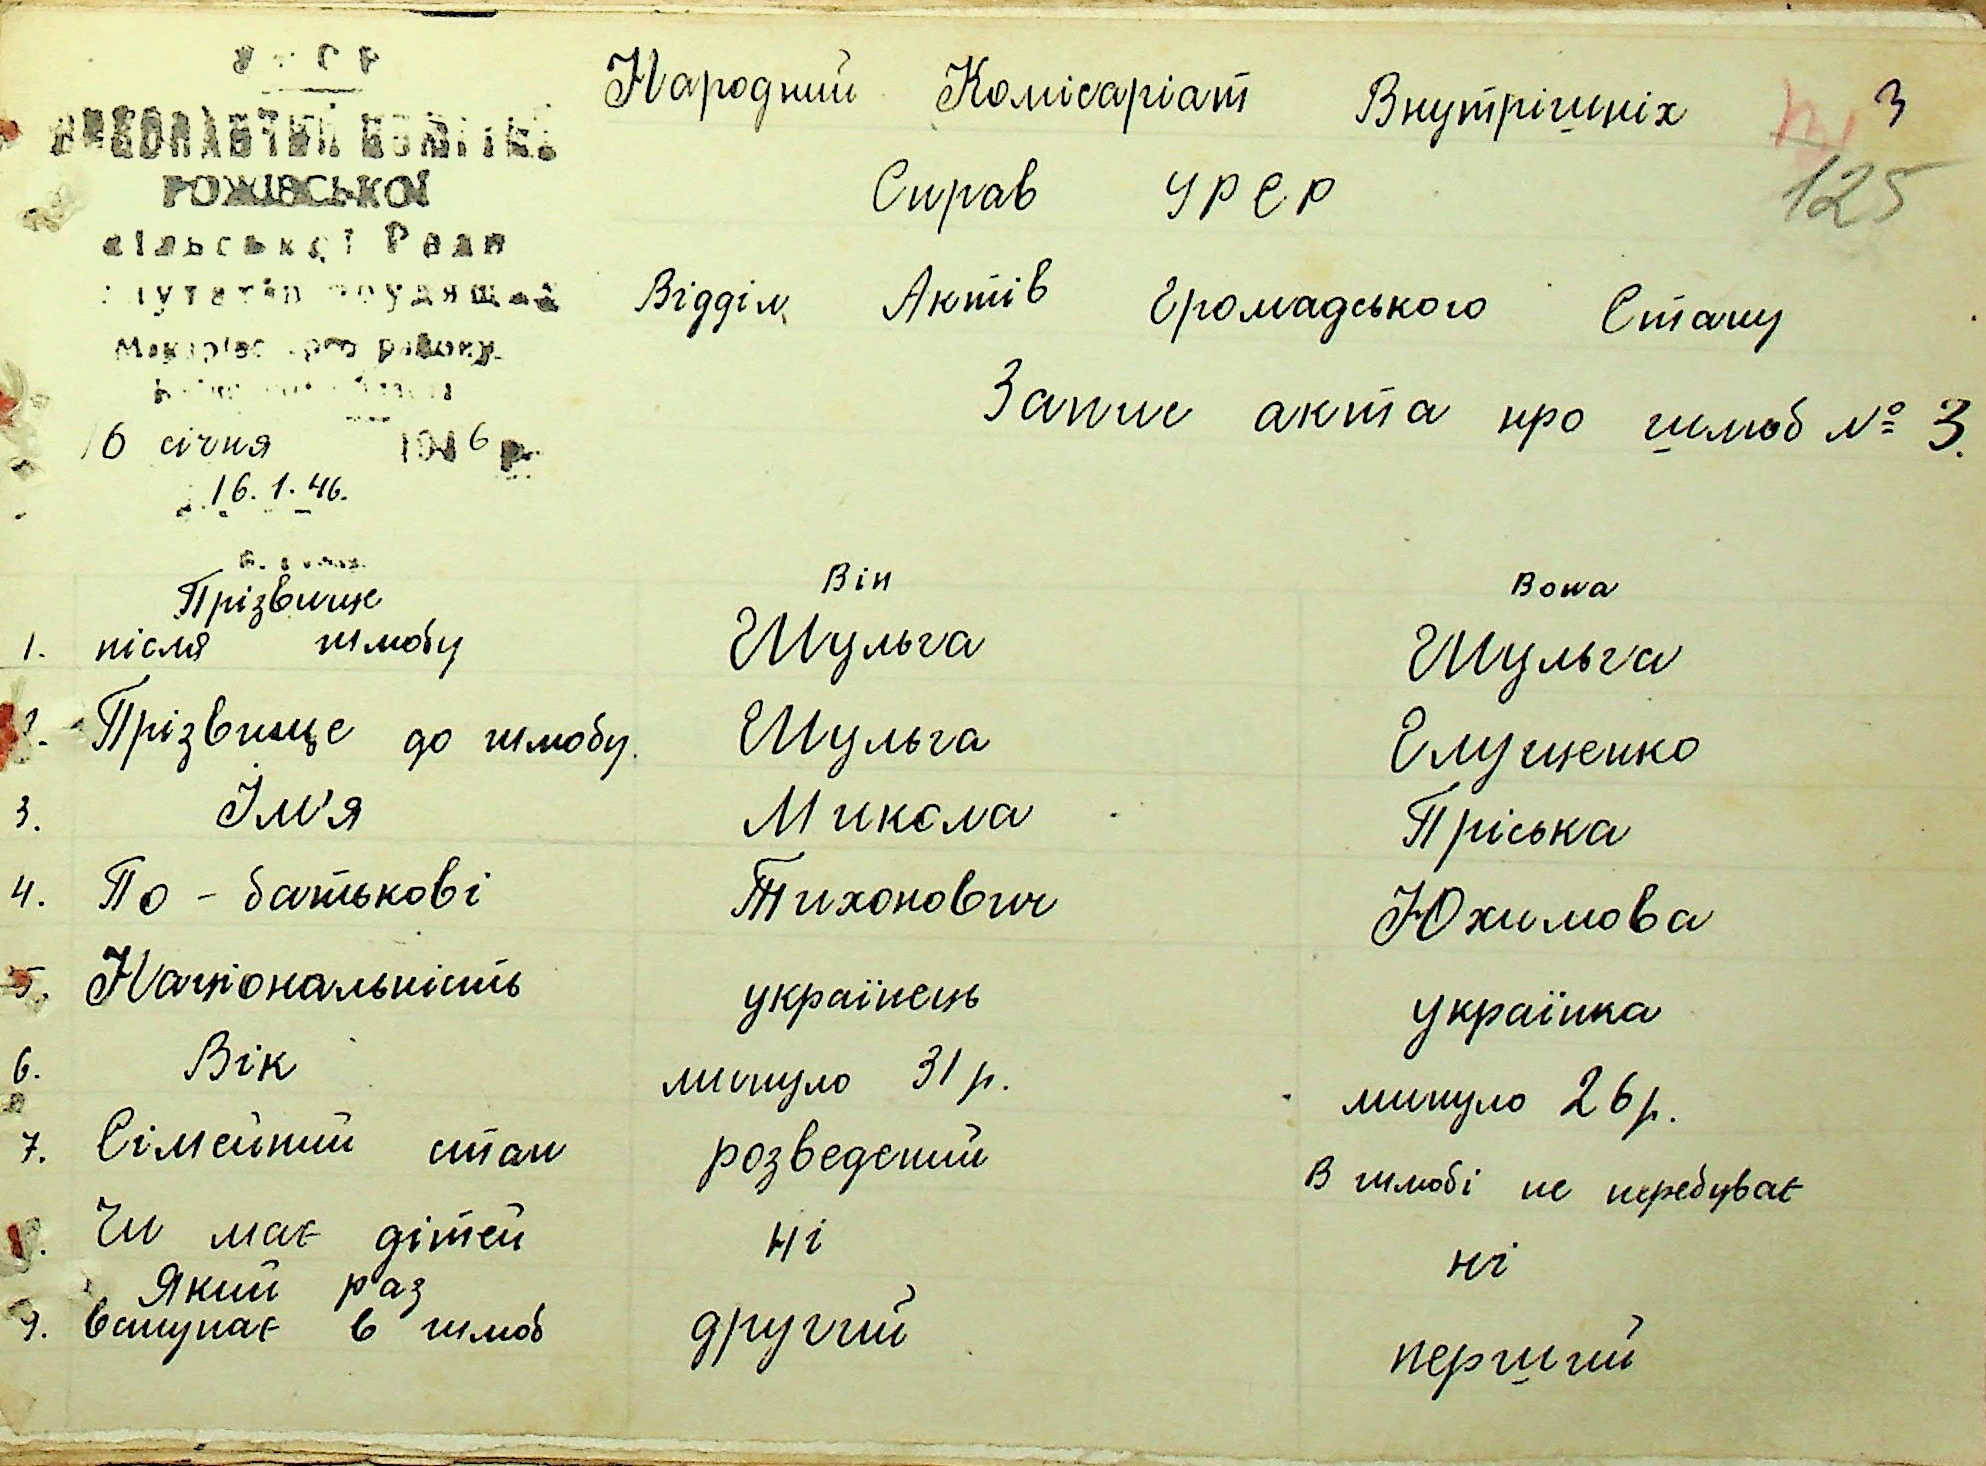 УРСР
ВИКОНАВЧИЙ КОМІТЕТ
РОЖІВСЬКОЇ
сільської Ради
депутатів трудящих
Макарівського району
16 січня 1946 р.
16. 1. 46.
Народний Комісаріат Внутрішніх
3
125
Справ УРСР
Відділ Актів Громадського Стану
Запис акта про шлюб № 3.
Він Вона
1. Прізвище після шлюбу Шульга Шульга
2. Прізвище до шлюбу. Шульга Глущенко
3. Їм'я Микола Пріська
4. По - батькові Тихонович Юхимова
5. Національність українець українка
6. Вік минуло 31 р. минуло 26 р.
7. Сімейний стан розведений В шлюбі не перебуває
8. Чи має дітей ні ні
Який раз
9. вступає в шлюб другий перший